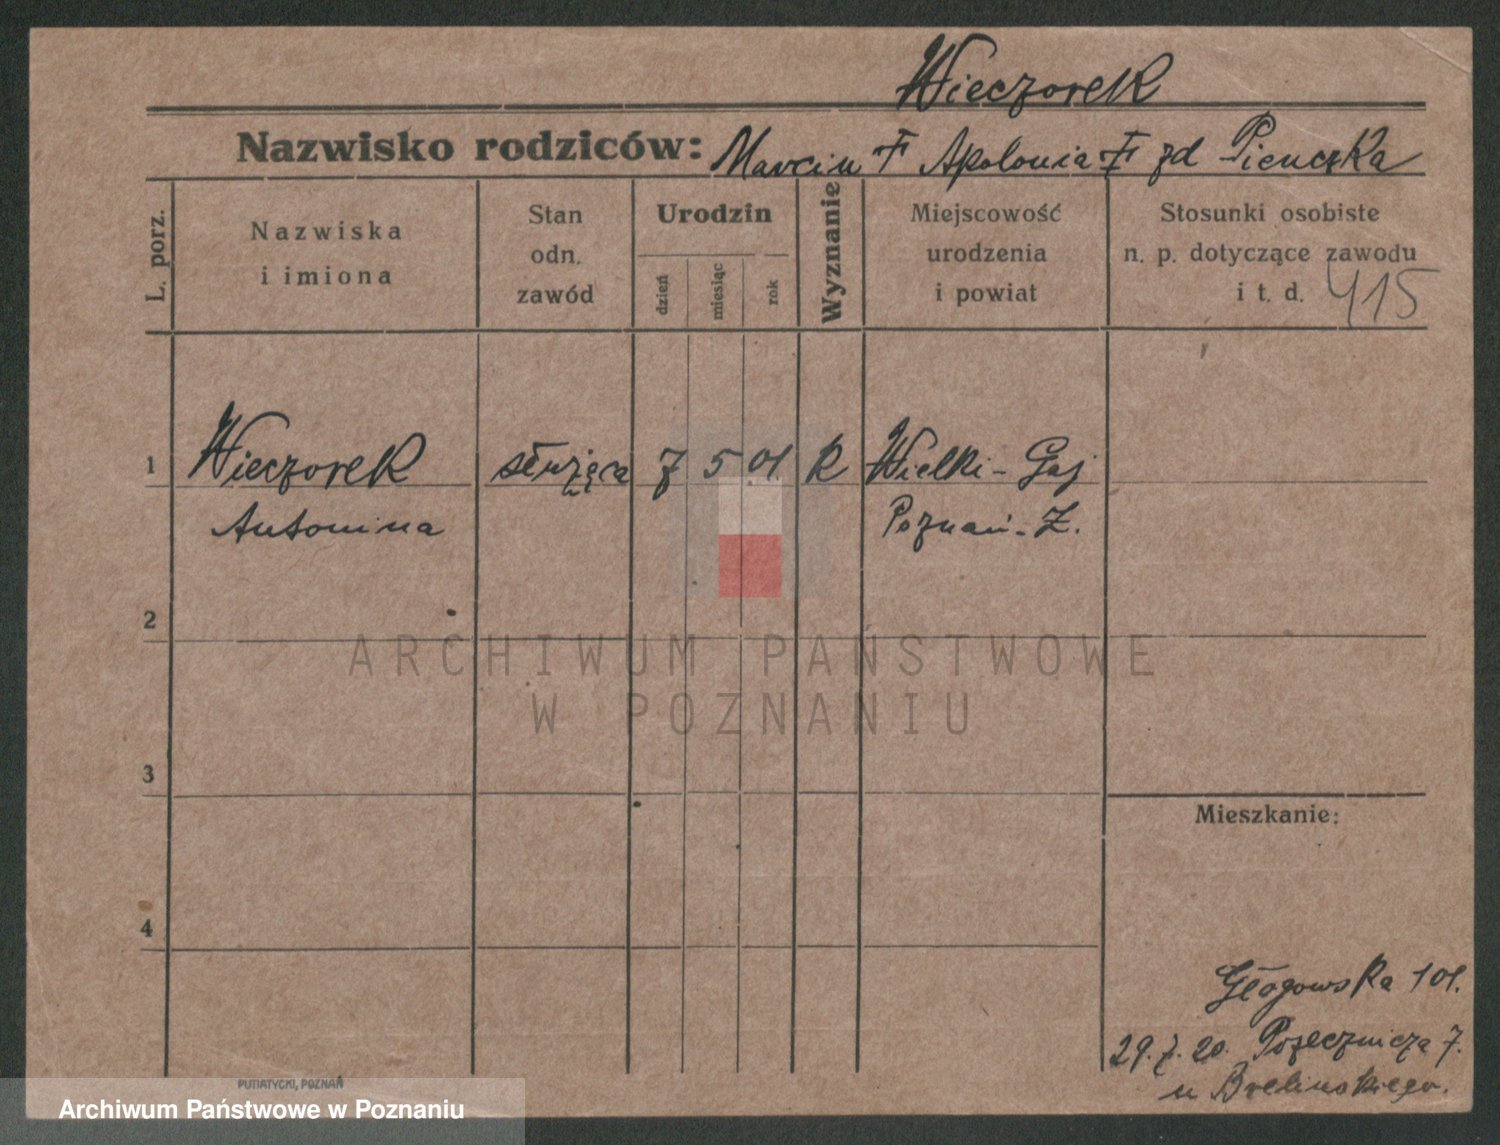 Wieczorek
Nazwisko rodziców: Marcin Ŧ Apolonia Ŧ zd Pieuczka
L. porz.
Nazwiska
i imiona
Stan
odn.
zawód
Urodzin
dzień
miesiąc
rok
Wyznanie
Miejscowość
urodzenia
i powiat
Stosunki osobiste
n. p. dotyczące zawodu
i t. d. 415
1 Wieczorek służąca 7 5 01 k Wielki-Gaj
Antonina Poznań-Z.
2
ARCHIWUM PAŃSTWOWE
W POZNANIU
3
Mieszkanie:
4
Głogowska 101.
29.7.20. Pożecznicza 7.
u Brelińskiego.
PUTIATYCKI, POZNAŃ
Archiwum Państwowe w Poznaniu